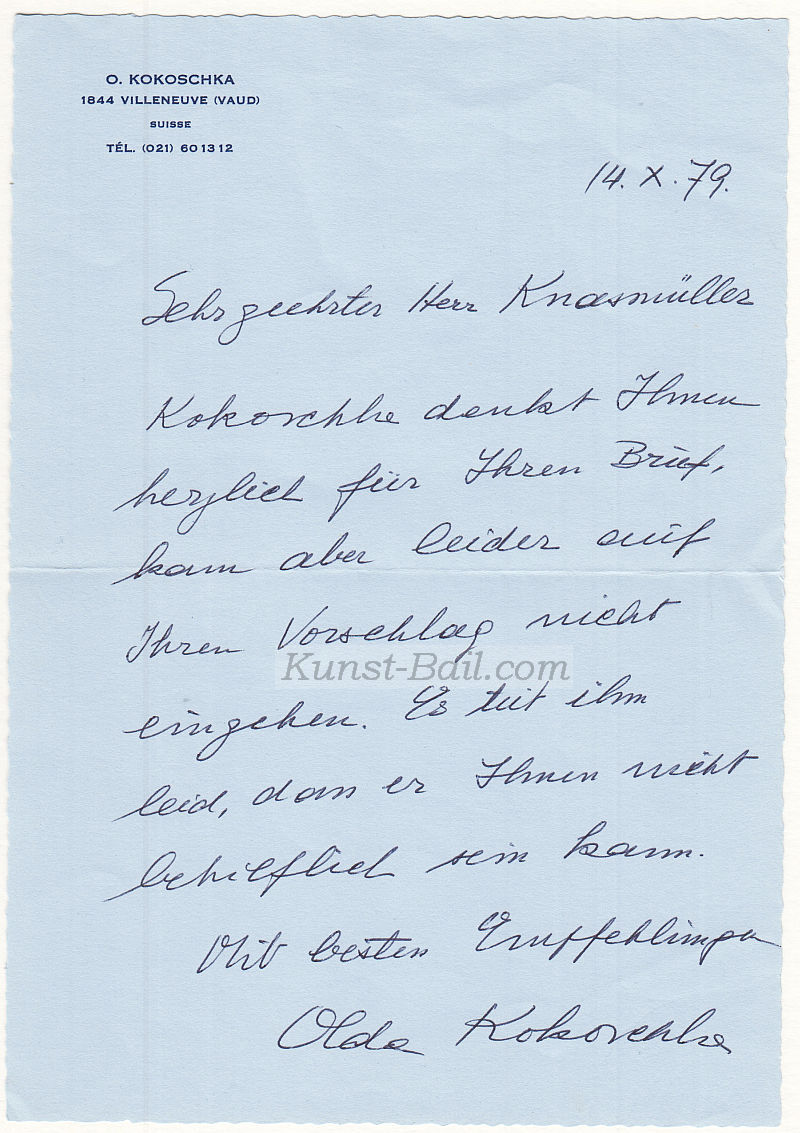 O. KOKOSCHKA
1844 VILLENEUVE (VAUD)
SUISSE
TÉL. (021) 60 13 12
14. X. 79.
Sehr geehrter Herr Knasmüller
Kokoschka dankt Ihnen
herzlich für Ihren Brief,
kann aber leider auf
Ihren Vorschlag nicht
Kunst-Bail.com
eingehen. Es tut ihm
leid, dass er Ihnen nicht
behilflich sein kann.
Mit besten Empfehlungen
Olda Kokoschka